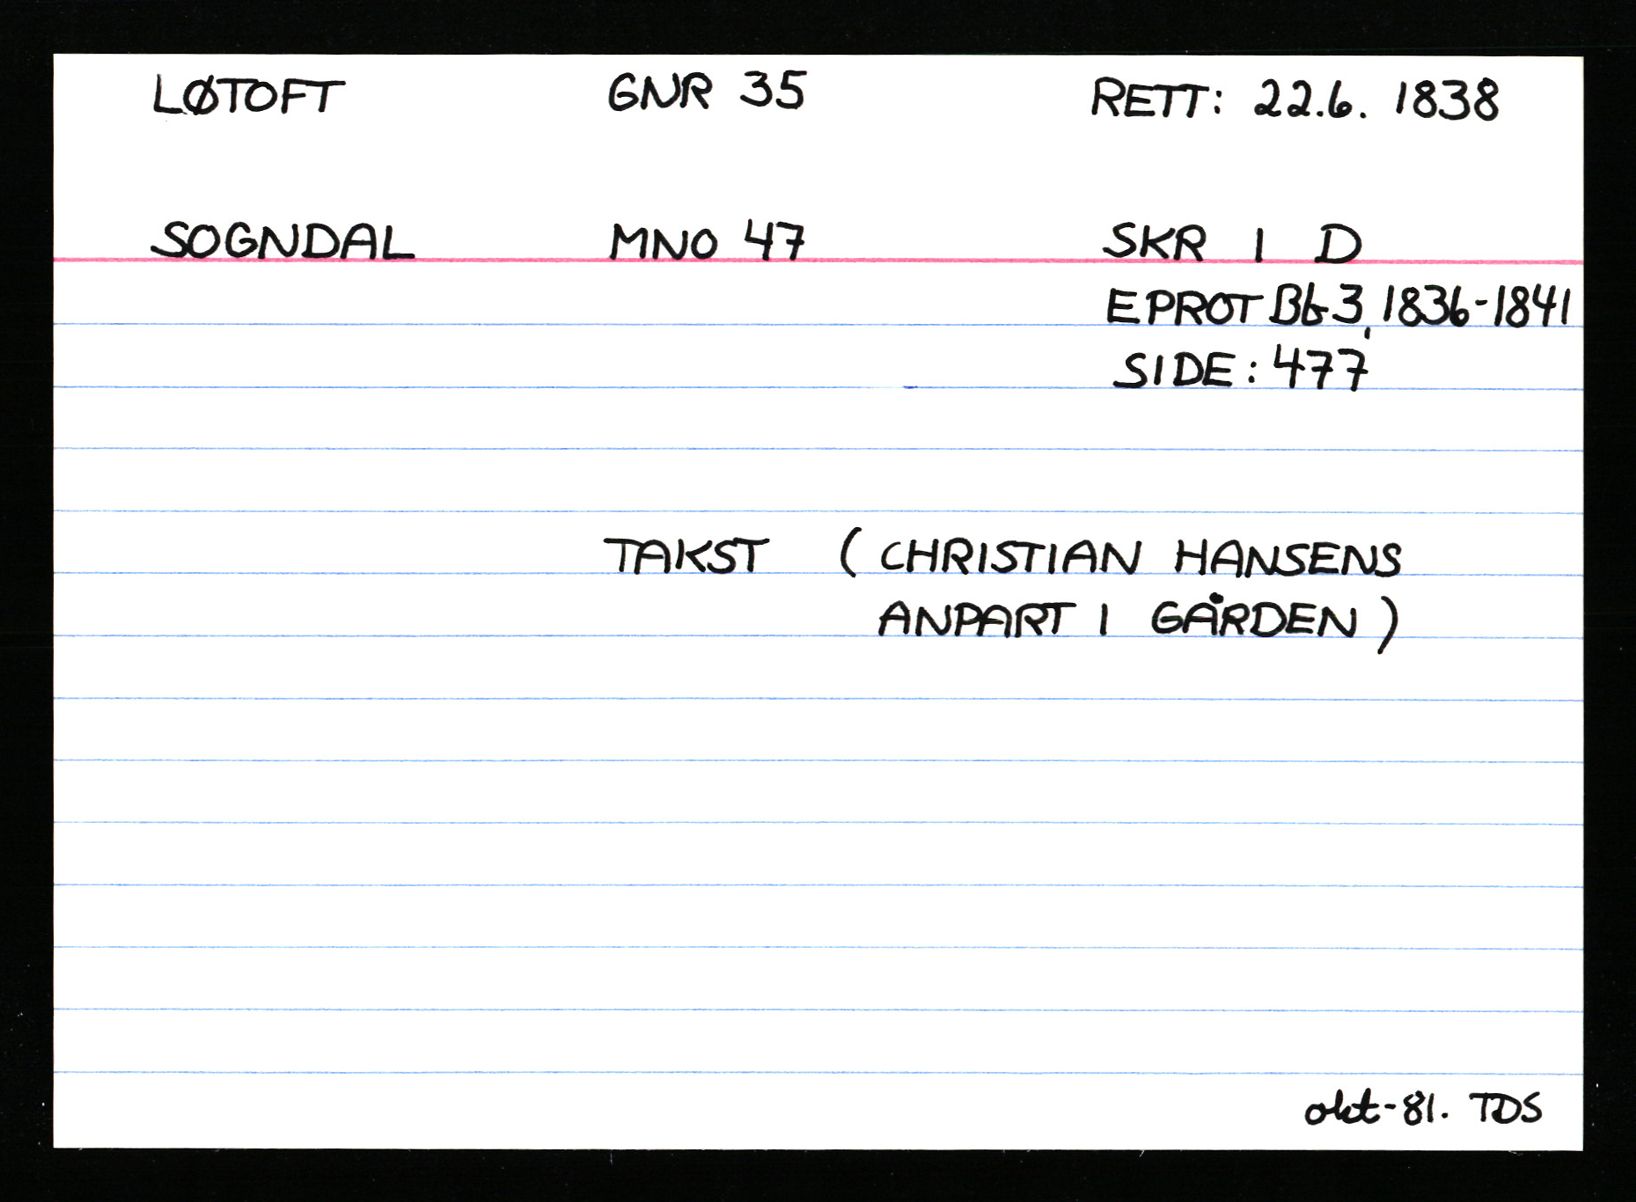 LØTOFT GNR 35 RETT: 22.6. 1838
SOGNDAL MNO 47 SKR I D
EPROT Bb 3, 1836-1841
SIDE: 477
TAKST (CHRISTIAN HANSENS
ANPART I GÅRDEN)
okt-81. TDS